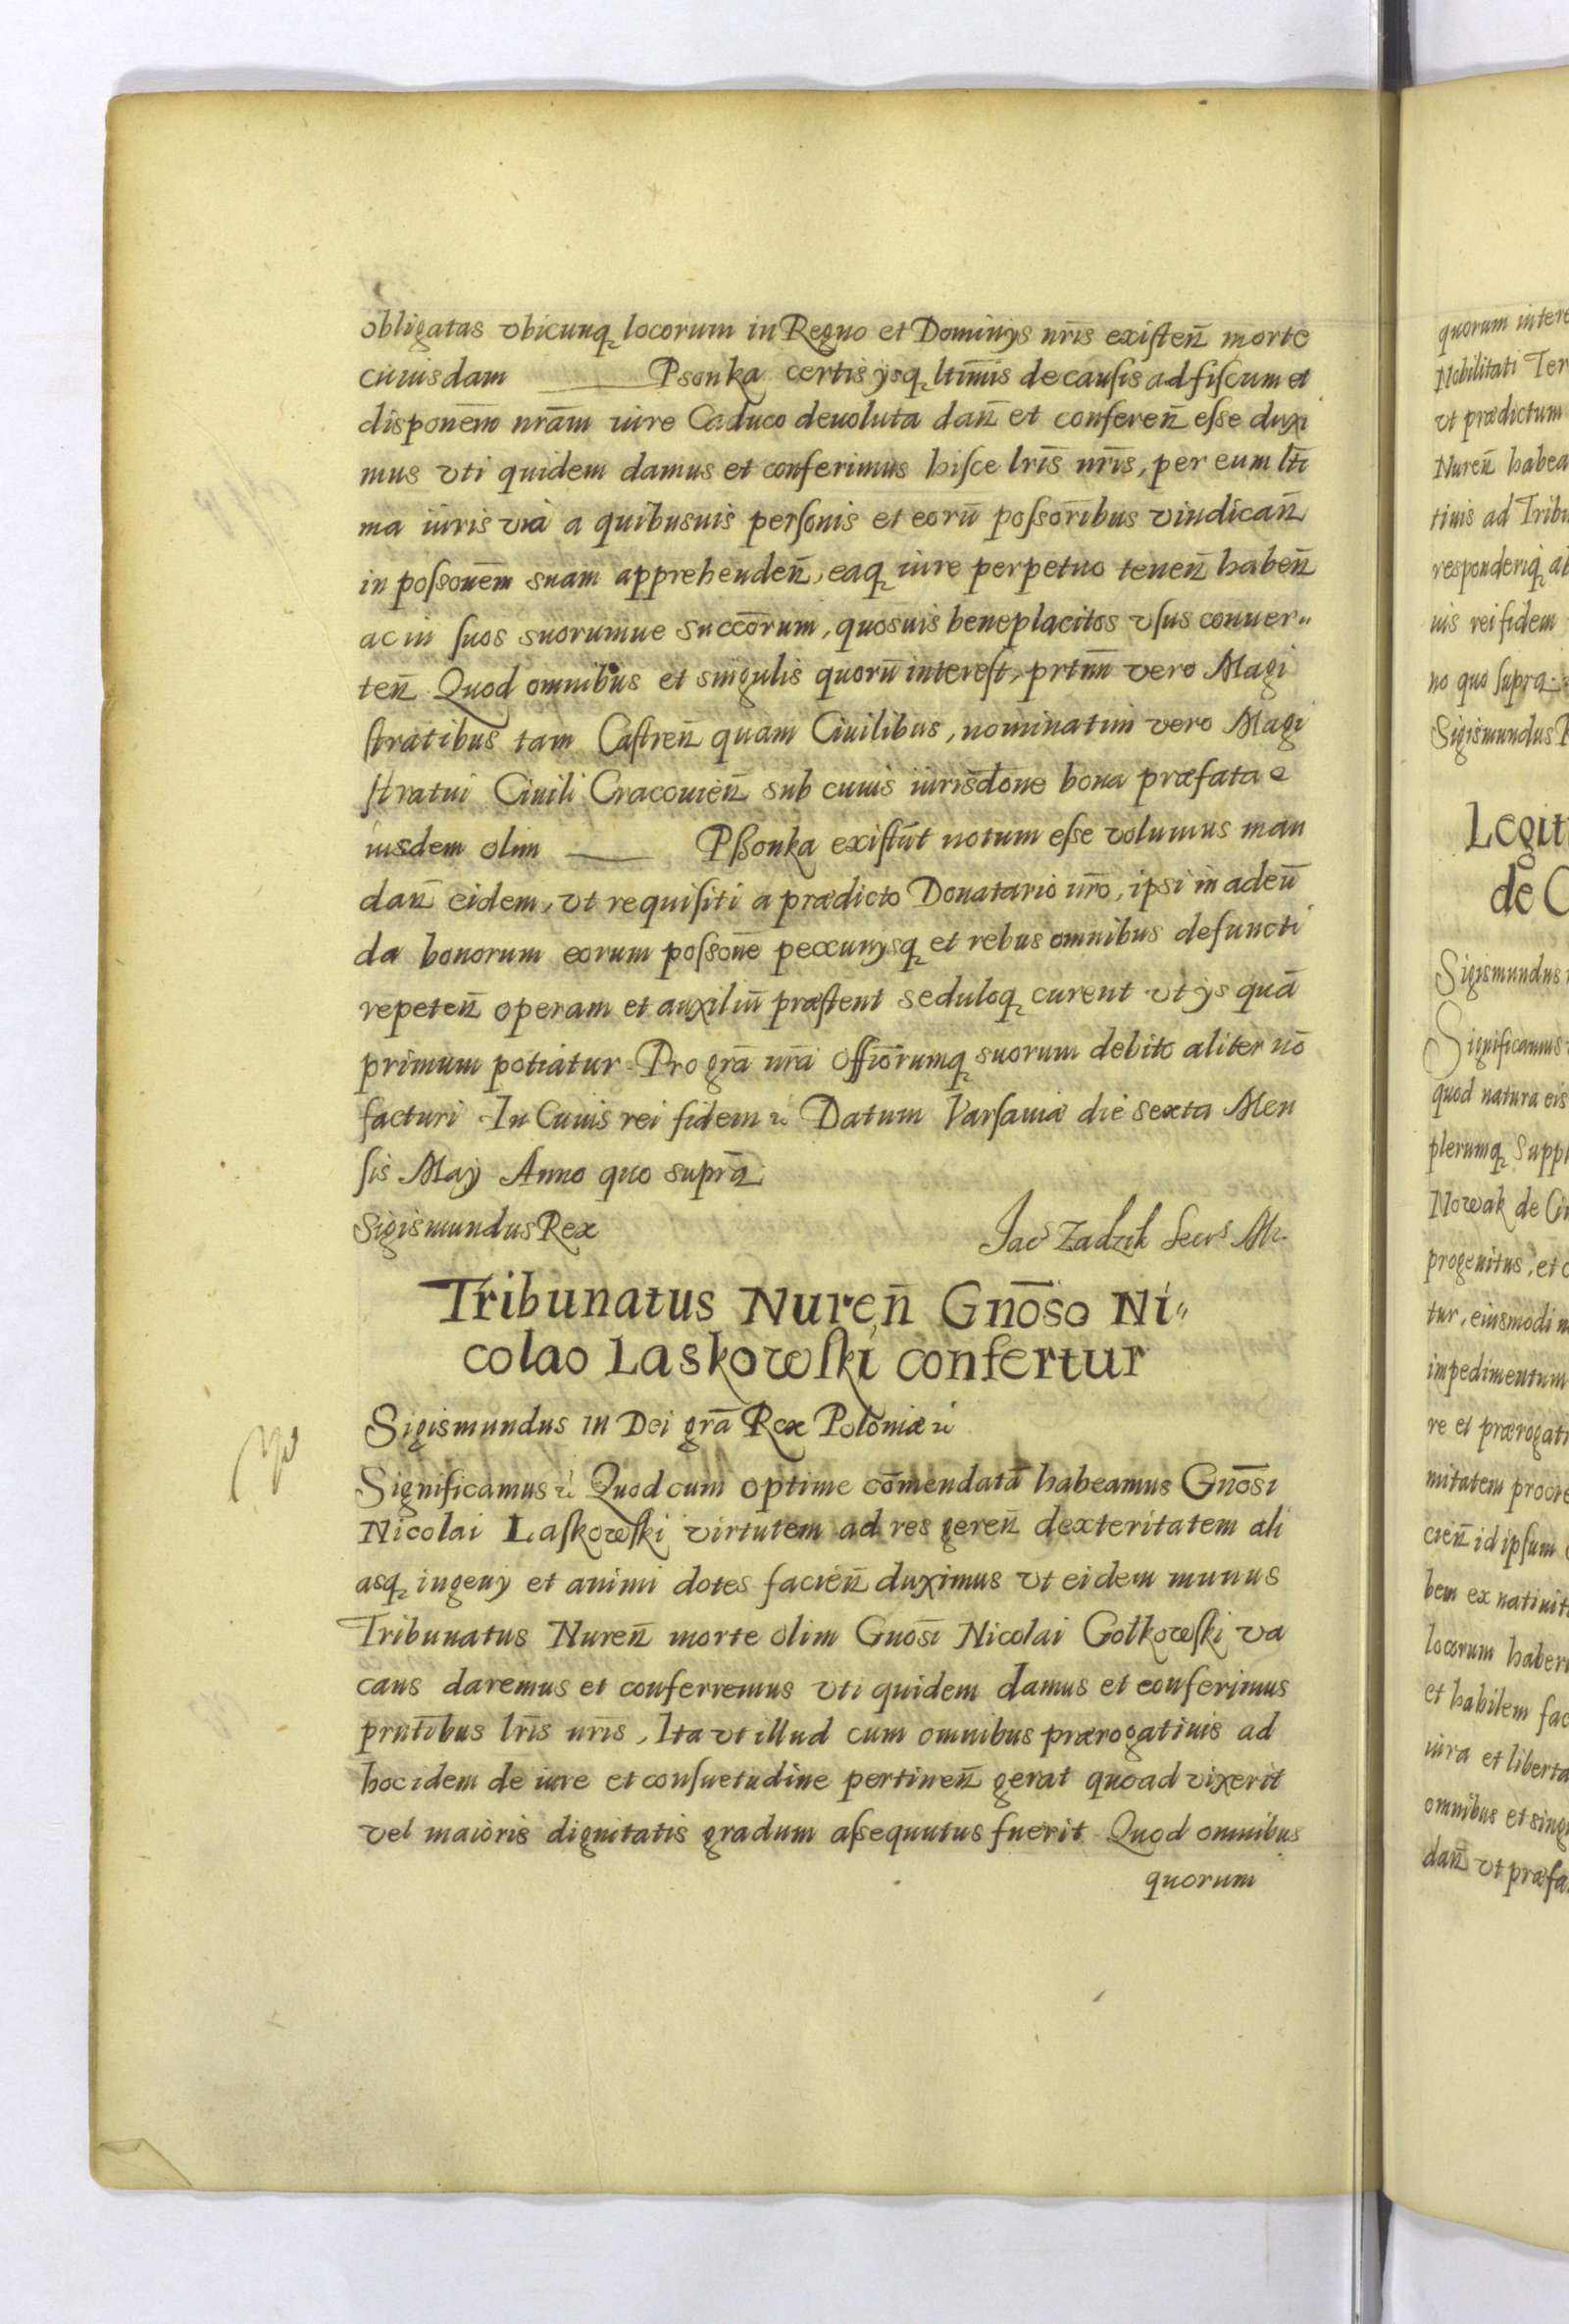 obligatas vbicunq locorum in Regno et Dominijs nr̄is existen̄ morte
cuiusdam ——— Psonka certis ijsq ltim̄is de causis ad fiscum et
disponem̄ nr̄am iure Caduco deuoluta dan̄ et conferen̄ esse duxi
mus vti quidem damus et conferimus hisce lr̄is nr̄is, per eum lt̄i
ma iuris via a quibusuis personis et eorū possor̄ibus vindican̄
in possonēm suam apprehenden̄, eaq iure perpetuo tenen̄ haben̄
ac in suos suorumue succōrum, quosuis beneplacitos vsus conuer„
ten̄ Quod omnibus et singulis quorū interest, prtm̄ vero Magi
stratibus tam Castren̄ quam Ciuilibus, nominatim vero Magi
stratui Ciuili Cracouien̄ sub cuius iurisdōne bona præfata e
iusdem olim ——— Pssonka existūt notum esse volumus man
dan̄ eidem, vt requisiti a prædicto Donatario nr̄o, ipsi in adeū
da bonorum eorum possōne pecunijsq et rebus omnibus defuncti
repeten̄ operam et auxiliū præstent seduloq curent vt ijs quā
primum potiatur Pro grā nr̄a offiōrumq suorum debito aliter nō
facturi In Cuius rei fidem &c Datum Varsauiæ die sexta Men
sis Maij Anno quo supra
Sigismundus Rex Jac Zadzik Secrs Mr.
Tribunatus Nuren̄ Gnōso Ni„
colao Laskowski confertur
Sigismundus III Dei grā Rex Poloniæ &c
Significamus &c Quod cum optime cōmendatā habeamus Gnōsi
Nicolai Laskowski virtutem ad res geren̄ dexteritatem ali
asq ingenij et animi dotes facien̄ duximus vt eidem munus
Tribunatus Nuren̄ morte olim Gnōsi Nicolai Golkowski va
cans daremus et conferremus vti quidem damus et conferimus
prnt̄ibus lr̄is nr̄is, Ita vt illud cum omnibus prærogatiuis ad
hoc idem de iure et consuetudine pertinen̄ gerat quoad vixerit
vel maioris dignitatis gradum assequutus fuerit Quod omnibus
quorum
quorum intere
Nobilitati Ter
vt prædictum
Nuren̄ habea
tiuis ad Tribu
responderiq ab
ius rei fidem
no quo supra
Sigismundus R
Legit
de C
Sigismundus
Significamus
quod natura eis
plerumq Suppl
Nowak de Ci
progenitus, et c
tur, eiusmodi n
impedimentum
re et prærogati
nitatem procre
cien̄ id ipsum
bem ex natiuit
locorum haberi
et habilem fac
iura et liberta
omnibus et sing
dan̄ vt præfa